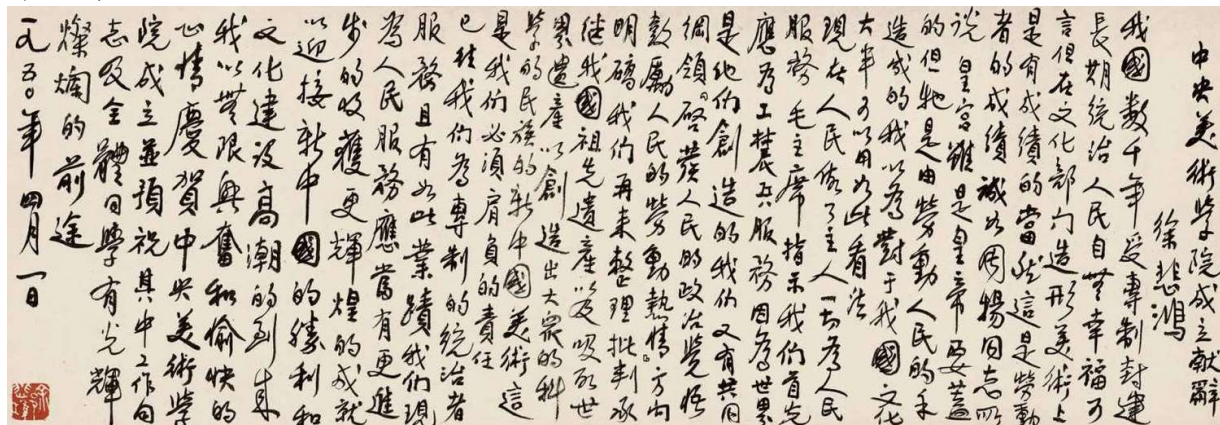 中央美術學院成立献辭
徐悲鴻
我國数千年受專制封建
長期统治人民自無幸福可
言但在文化部门造形美術上
是有成績的當然這是勞動
者的成績誠如周揚同志所
说皇宫雖是皇帝要蓋
的但牠是由勞動人民的手
造成的我以為對于我國文化
大半可以用如此看法
現在人民做了主人一切為人民
服務毛主席指示我们首先
應為工農兵服務因為世界
是他们創造的我们又有共同
綱領啓發人民的政治覺悟
鼓勵人民的勞動熱情方向
明確我们再来整理批判承
继我國祖先遺産以及吸取世
界遺産以創造出大衆的科
學的民族的新中國美術這
是我们必須肩負的責任
已往我们為專制的統治者
服務且有如此業蹟我们現
為人民服務應當有更進
步的收獲更輝煌的成就
以迎接新中國的勝利和
文化建设高潮的到来
我以無限興奮和愉快的
心情慶賀中央美術學
院成立並預祝其中工作同
志及全體同學有光輝
燦爛的前途
一九五〇年四月一日